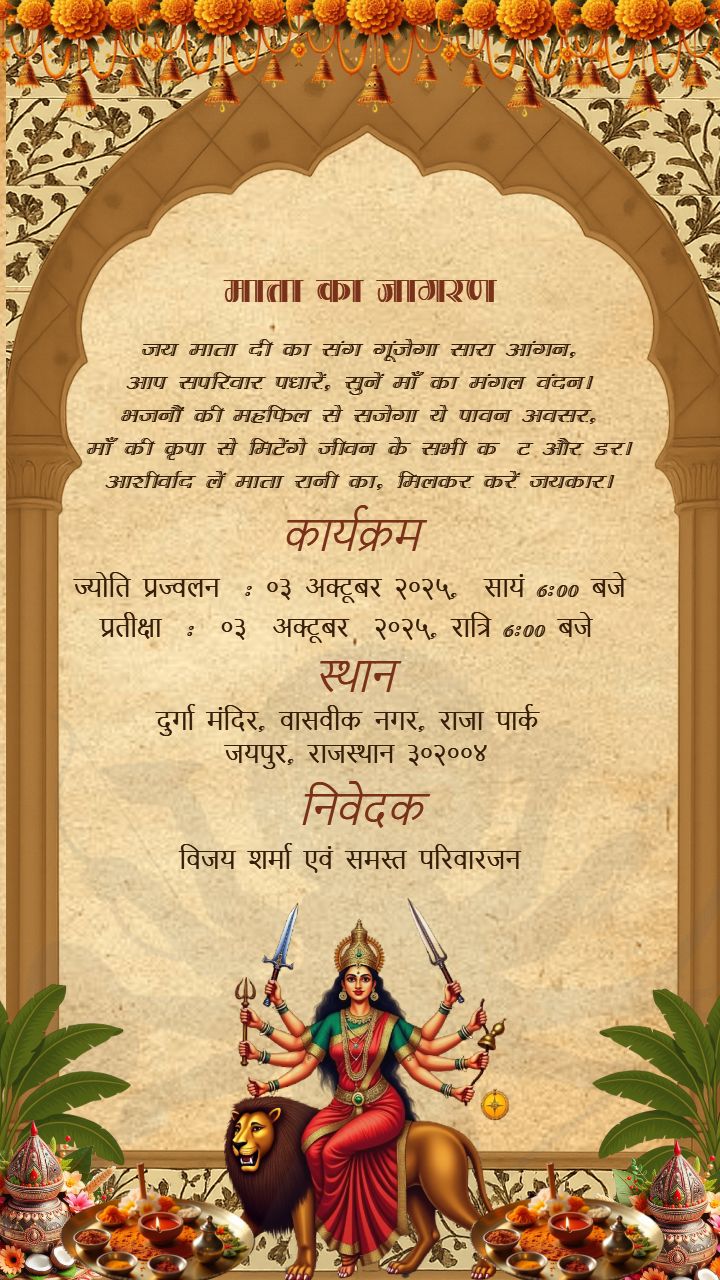 माता का जागरण
जय माता दी का संग गूंजेगा सारा आंगन,
आप सपरिवार पधारें, सुनें माँ का मंगल वंदन।
भजनों की महफिल से सजेगा ये पावन अवसर,
माँ की कृपा से मिटेंगे जीवन के सभी क ट और डर।
आशीर्वाद लें माता रानी का, मिलकर करें जयकार।
कार्यक्रम
ज्योति प्रज्वलन : ०३ अक्टूबर २०२५, सायं 6:00 बजे
प्रतीक्षा : ०३ अक्टूबर २०२५, रात्रि 6:00 बजे
स्थान
दुर्गा मंदिर, वासवीक नगर, राजा पार्क
जयपुर, राजस्थान ३०२००४
निवेदक
विजय शर्मा एवं समस्त परिवारजन